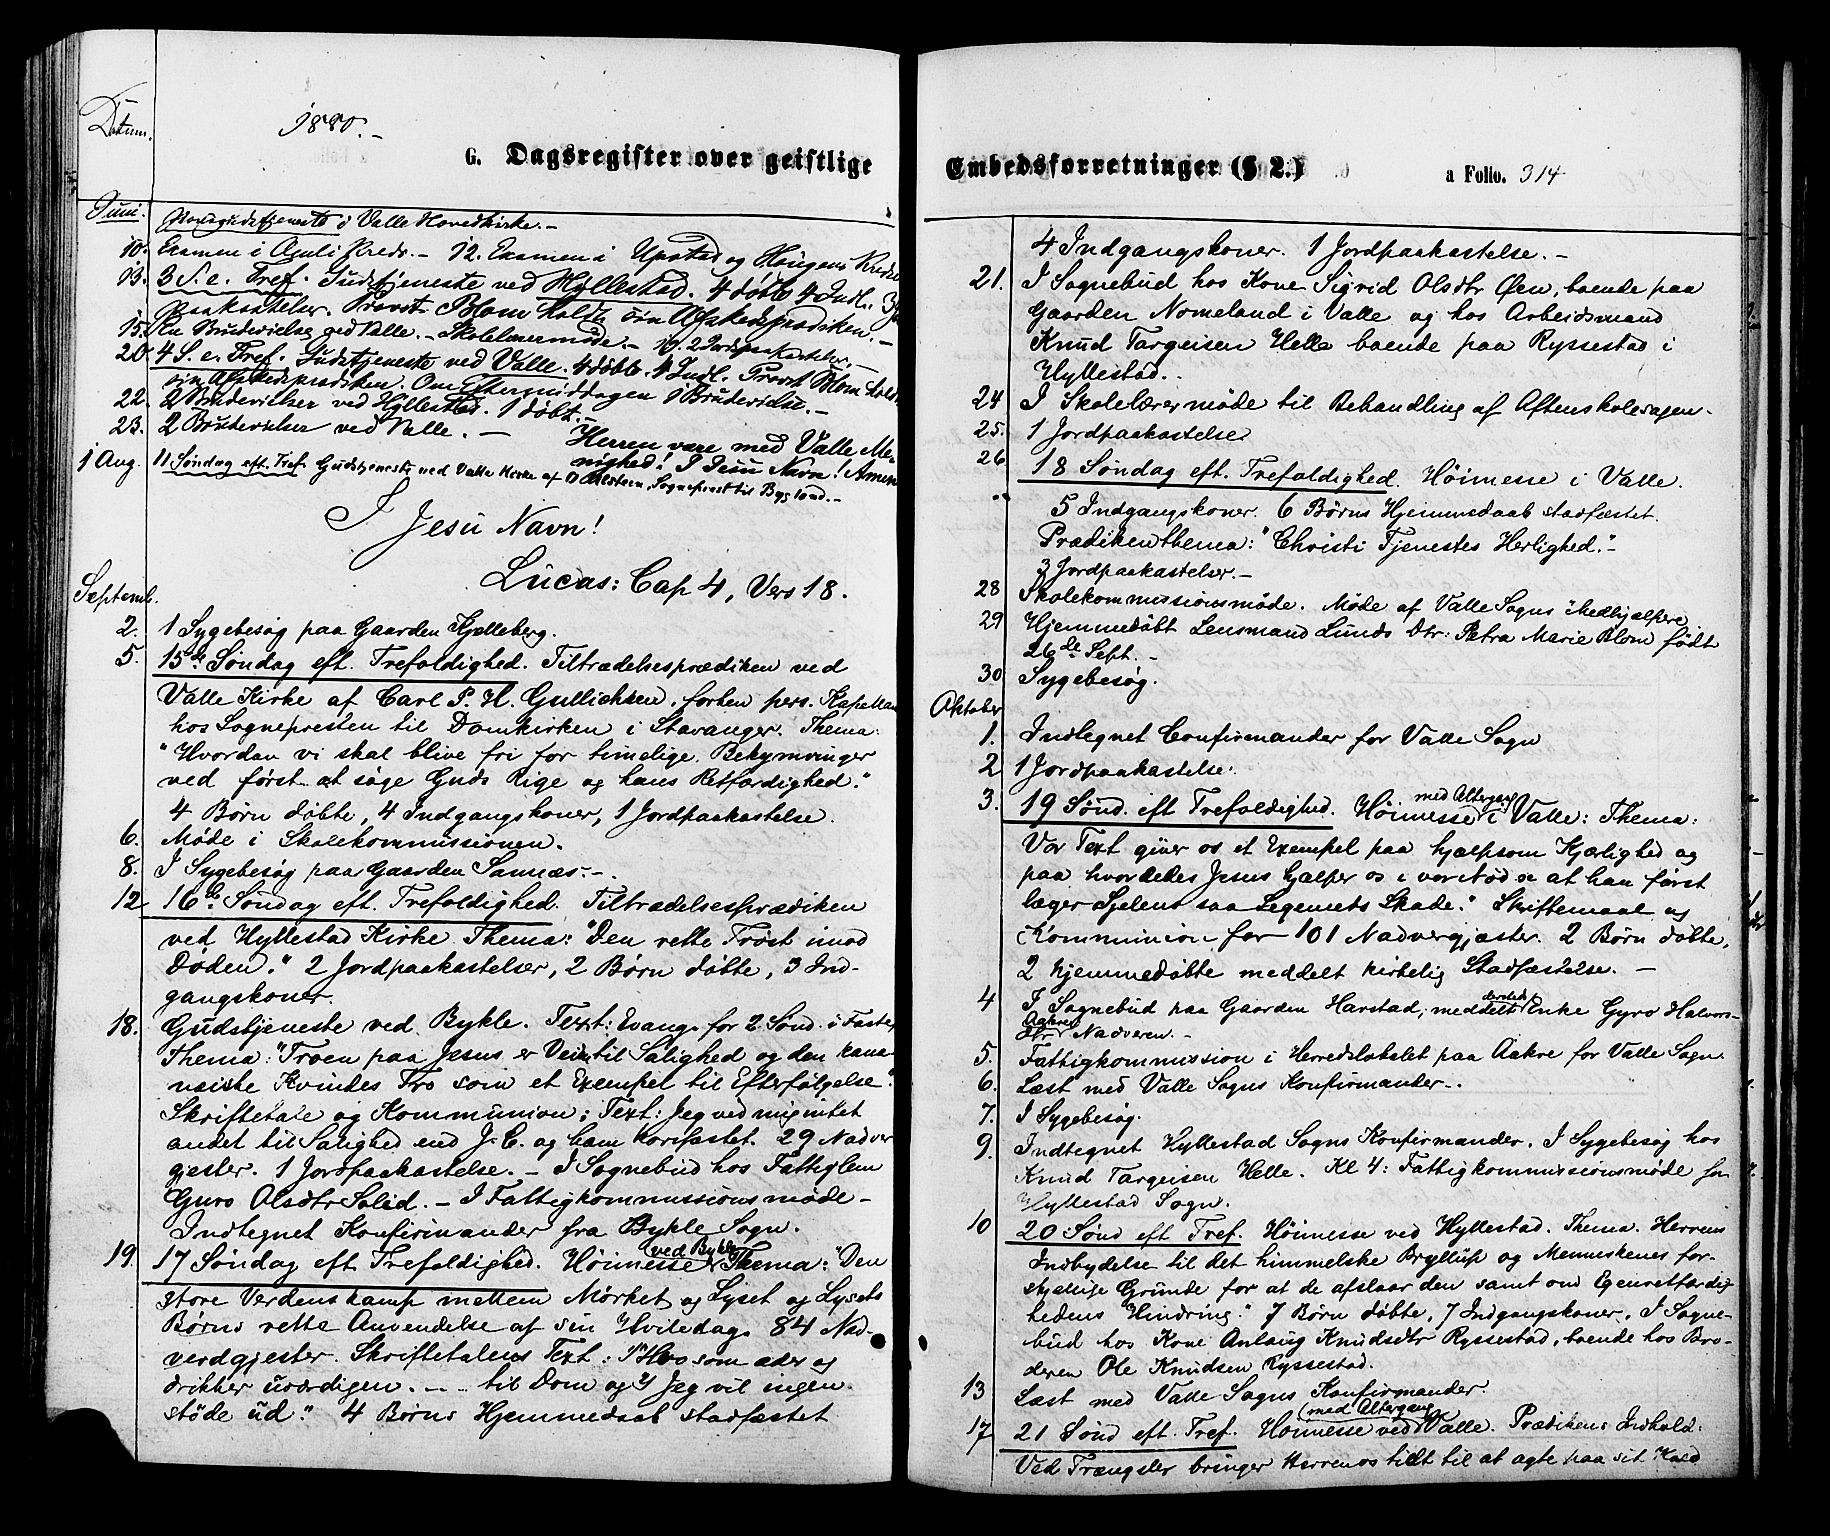 Datum.
1880.-
G. Dagsregister over geistlige
Juni. Provsgudstjeneste i Valle Hovedkirke.-
10. Examen i Aamli Kreds.- 12. Examen i Upstad og Haugens Kredse
13. 3 S. e. Tref. Gudstjeneste ved Hyllestad. 4 døbte 4 Indl. 3 Jord-
paakastelser. Provst Blom holdt sin Afskedsprædiken.-
15. En Brudevielse ved Valle.- Skolelærermøde.- 19. 2 Jordpaakastelser.
20. 4 S. e. Tref. Gudstjeneste ved Valle. 4 døbte. 4 Indl. Provst Blom holdt
sin Afskedsprædiken. Om Eftermiddagen 1 Brudevielse.-
22. 2 Brudevielser ved Hyllestad. 1 døbt.
23. 2 Brudevielser ved Valle.- Herren være med Valle Me-
nighed! I Jesu Navn! Amen
1 Aug. 11 Søndag eft. Tref. Gudstjeneste ved Valle Kirke af Sognepræst til Bygland.-
I Jesu Navn!
Lucas: Cap 4, Vers 18.
Septemb.
2. 1 Sygebesøg paa Gaarden Kjelleberg.
5. 15de Søndag eft. Trefoldighed. Tiltrædelsesprædiken ved
Valle Kirke af Carl P. H. Gullichsen, forhen pers. Kapellan
hos Sognepresten til Domkirken i Stavanger. Thema:
"Hvordan vi skal blive fri for timelige Bekymringer
ved først at søge Guds Rige og hans Retfærdighed."
4 Børn døbte, 4 Indgangskoner, 1 Jordpaakastelse.
6. Møde i Skolekommissionen.
8. I Sygebesøg paa Gaarden Sannæs.-
12 16de Søndag eft. Trefoldighed. Tiltrædelsesprædiken
ved Hyllestad Kirke. Thema: "Den rette Trøst imod
Døden." 2 Jordpaakastelser, 2 Børn døbte, 3 Ind-
gangskoner.
18. Gudstjeneste ved Bykle. Text: Evang. for 2 Sønd. i Faste,
Thema: "Troen paa Jesus er Veien til Salighed og den kana-
næiske Kvindes Tro som et Exempel til Efterfølgelse".
Skriftetale og Kommunion; Text: Jeg ved mig intet
andet til Salighed end J. C. og ham korsfæstet. 29 Nadver
gjester. 1 Jordpaakastelse.- I Sognebud hos Fattiglem
Guro Olsdtr Solid.- I Fattigkommussionsmøde-
Indtegnet Konfirmander fra Bykle Sogn.
19. 17 Søndag eft Trefoldighed. Høimesse (ved Bykle) Thema: "Den
store Verdenskamp mellem Mørket og Lyset og Lysets
Børns rette Anvendelse af sin Hviledag. 84 Nad-
verdgjester. Skriftetalens Text: 1) "Hvo som æder og
drikker uværdigen.-- til Dom og 2) Jeg vil ingen
støde ud." 4 Børns Hjemmedaab stadfæstet
Embedsforretninger (§ 2.)
a Folio. 314
4 Indgangskoner. 1 Jordpaakastelse.-
21. I Sognebud hos Kone Sigrid Olsdtr Øen, boende paa
Gaarden Nomeland i Valle og hos Arbeidsmand
Knud Targeisen Helle boende paa Ryssestad i
Hyllestad.
24 I Skolelærermøde til Behandling af Aftenskolesagen.
25. 1 Jordpaakastelse
26 18 Søndag eft. Trefoldighed. Høimesse i Valle.
5 Indgangskoner. 6 Børns Hjemmedaab stadfæstet.
Prædikenthema: "Christi Tjenestes Herlighed."-
3 Jordpaakastelser.-
28 Skolekommussionsmøde. Møde af Valle Sogns Medhjælpere
29 Hjemmedøbt Lensmand Lunds Dtr: Petra Marie Blom født
26de Sept.-
30 Sygebesøg.
Oktober
1. Indtegnet Confirmander for Valle Sogn
2 1 Jordpaakastelse.
3. 19 Sønd. eft Trefoldighed. Høimesse med Altergang i Valle: Thema:
Vor Text giver os et Exempel paa hjælpsom Kjærlighed og
paa hvorledes Jesus hjælper os i vor Nød at han først
læger Sjælens saa Legemets Skade." Skriftemaal og
Kommunion for 101 Nadvergjæster. 2 Børn døbte,
2 hjemmedøbte meddelt kirkelig Stadfæstelse.-
4 I Sognebud paa Gaarden Harstad; meddelt dersteds Enke Gyro Halvors-
dtr Aakre Nadveren.-
5. Fattigkommussion i Herredslokalet paa Aakre for Valle Sogn
6. Læst med Valle Sogns Konfirmander.-
7. I Sygebesøg.
9. Indtegnet Hyllestad Sogns Konfirmander. I Sygebesøg hos
Knud Targeisen Helle. Kl 4: Fattigkommussionsmøde for
Hyllestad Sogn.
10 20 Sønd eft Tref. Høimesse ved Hyllestad. Thema. Herrens
Indbydelse til det himmelske Bryllup og Menneskenes for-
skjellige Grunde for at de afslaar den samt om Egenretfærdig-
hedens Hindring." 7 Børn døbte, 7 Indgangskoner. I Sogne-
bud hos Kone Anlaug Knudsdtr Ryssestad, boende hos Bro-
deren Ole Knudsen Ryssestad.
13 Læst med Valle Sogns Konfirmander.
17 21 Sønd eft. Tref. Høimesse (med Altergang) ved Valle. Prædikens Indhold:
Ved Trængsler bringer Herren os tidt til at agte paa sit Kald